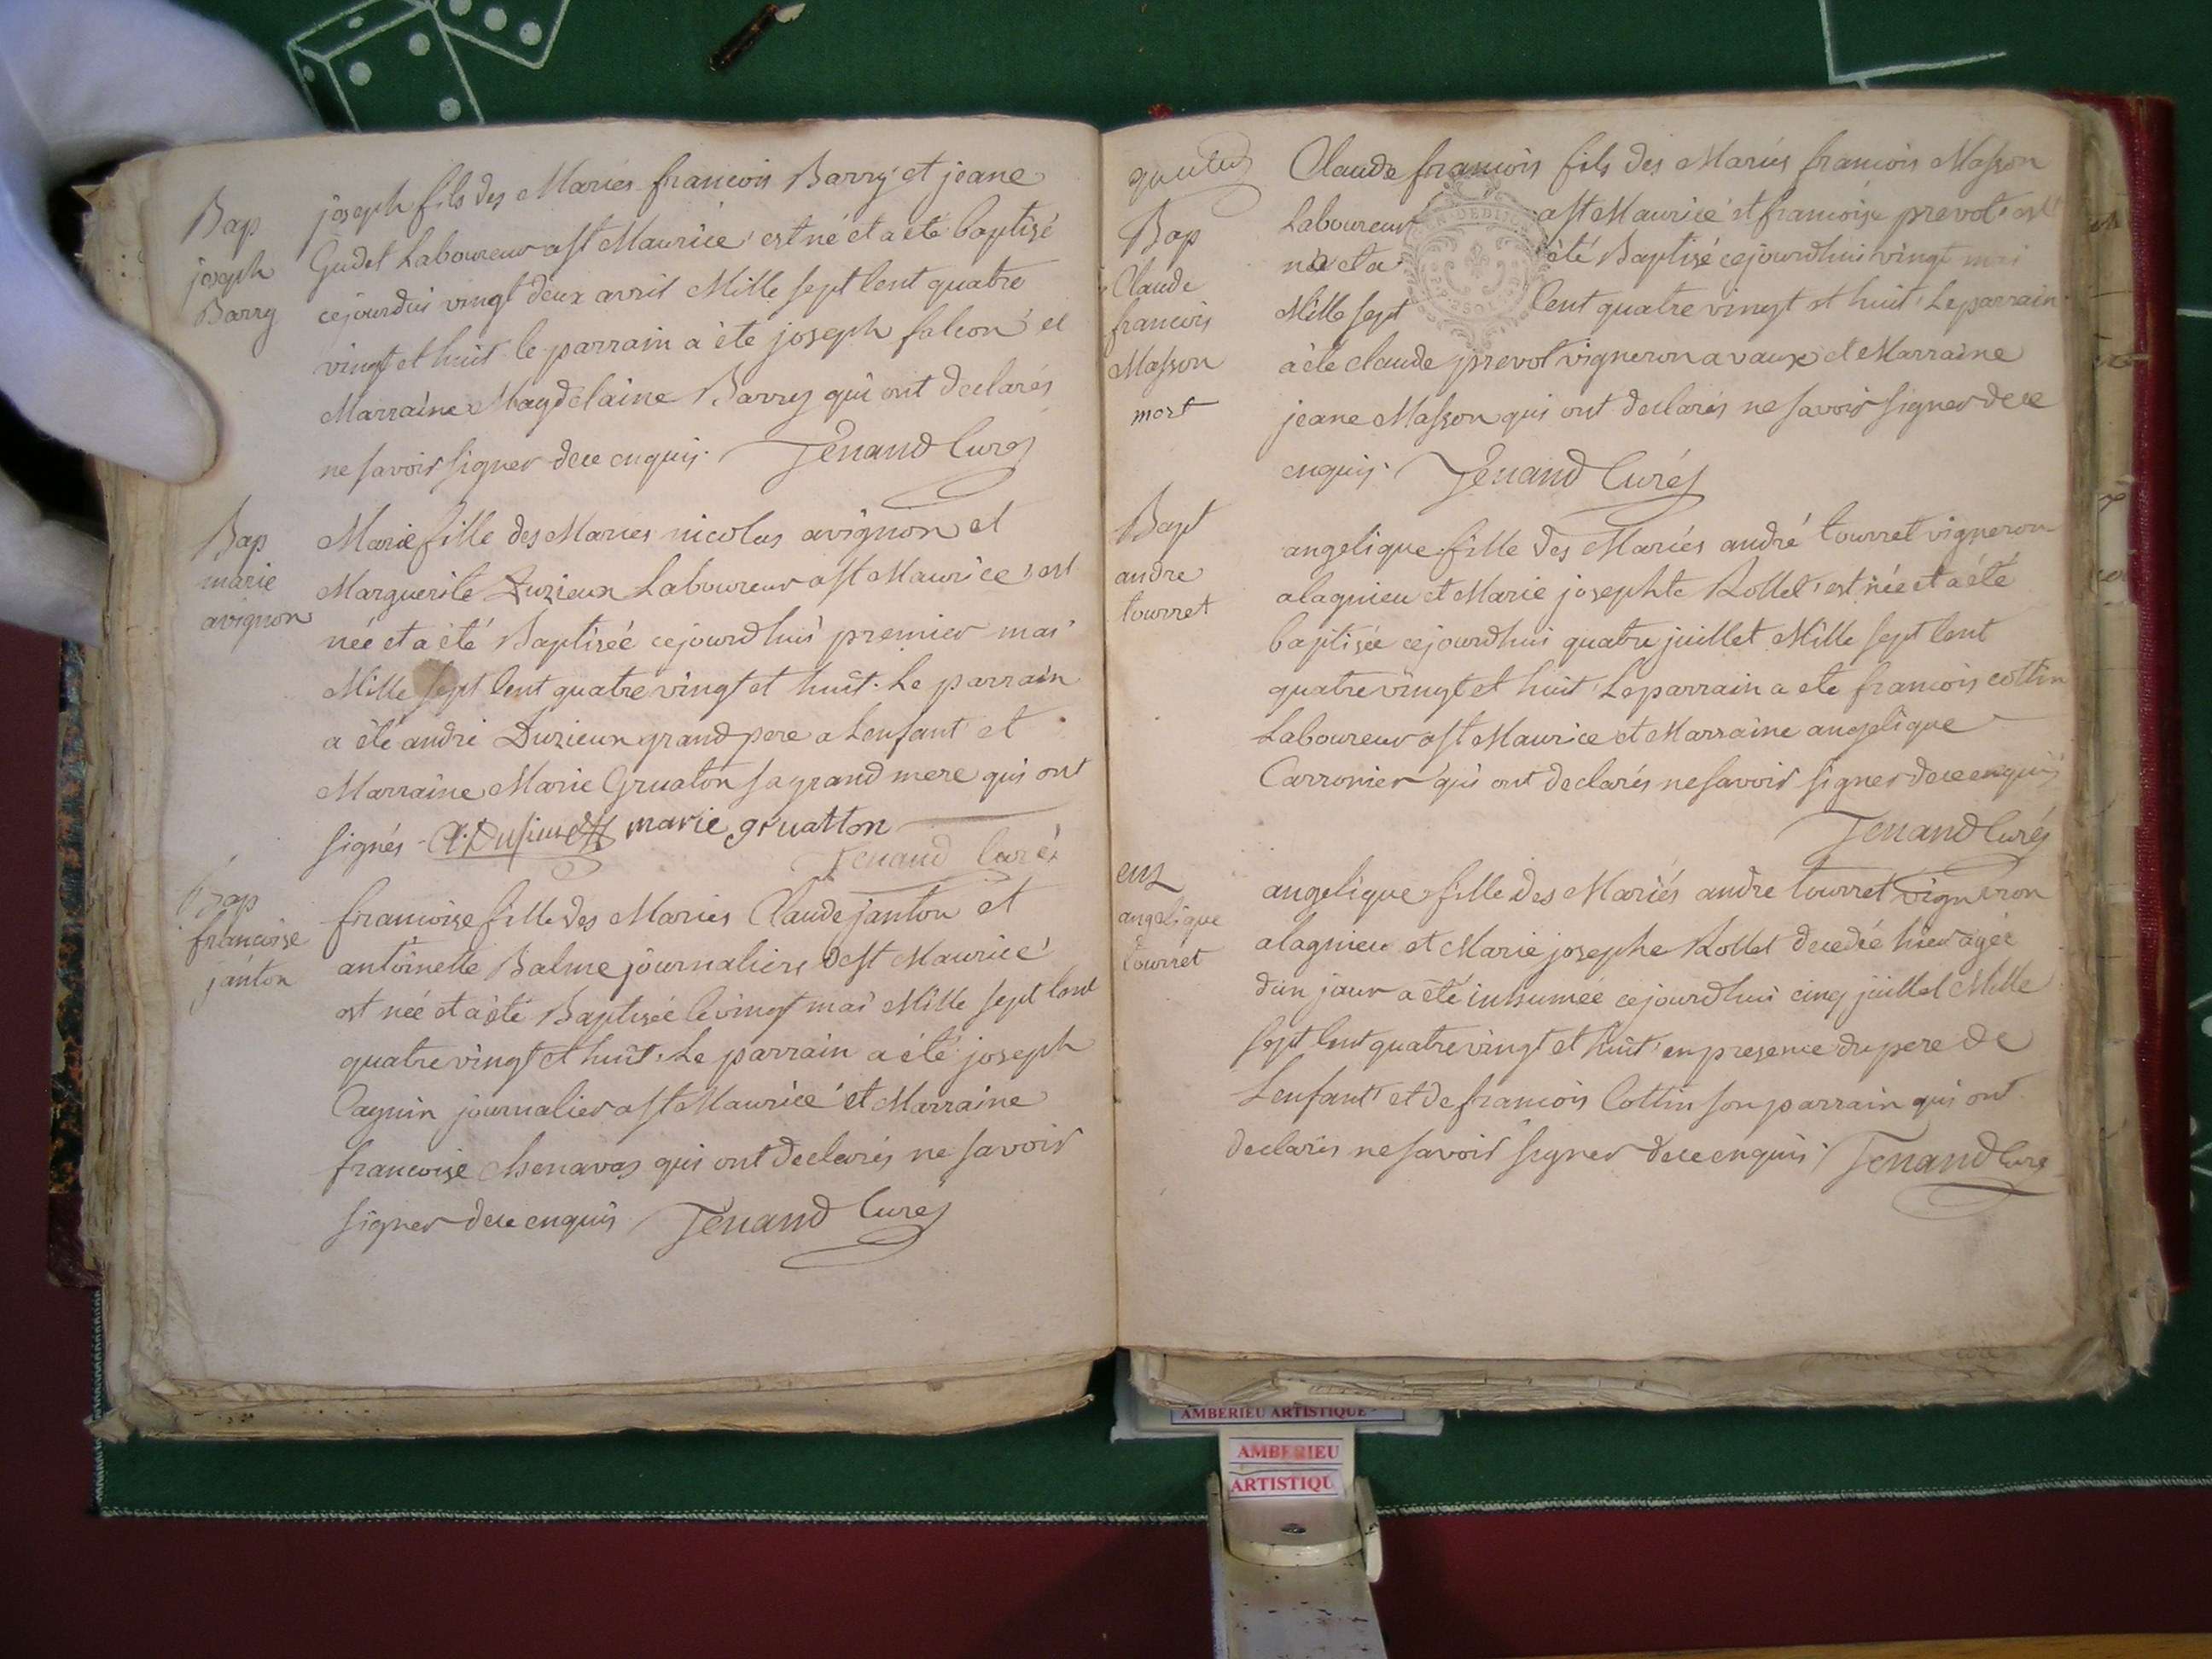 Bap
joseph
Barry
joseph fils des Mariés francois Barry et jeane
Gudet Laboureur a st Maurice est né et a été baptisé
cejourdui vingt deux avril Mille sept Cent quatre
vingt et huit le parrain a été joseph falcon et
Marraine Magdelaine Barry qui ont declarés
ne savoir signer de ce enquis. Tenand Curé
Bap
marie
avignon
Marie fille des Mariés nicolas avignon et
Marguerite Duzieux Laboureur a st Maurice est
née et a été Baptiseé cejourdhui premier mai
Mille sept Cent quatre vingt et huit. Le parrain
a été andré Duzieux grand pere a Lenfant et
Marraine Marie Gruaton sa grand mere qui ont
signés marie gruatton
Tenand Curé
Bap
francoise
janton
francoise fille des Mariés Claude janton et
antoinette Balme journaliers de st Maurice
est née et a été Baptiseé le vingt mai Mille sept Cent
quatre vingt et huit. Le parrain a été joseph
Cagnin journalier a st Maurice et Marraine
francoise Chenavas qui ont declarés ne savoir
signer de ce enquis Tenand Curé
Bap
Claude
francois
Masson
mort
Claude francois fils des Mariés francois Masson
Laboureur a st Maurice et francoise prevot est
né et a été Baptisé cejourdhui vingt mai
Mille sept Cent quatre vingt et huit Le parrain
a été claude prevot vigneron a vaux et Marraine
jeane Masson qui ont declarés ne savoir signer de ce
enquis. Tenand Curé
Bapt
andre
tourret
angelique fille des Mariés andré tourret vigneron
a lagnieu et Marie josephte Rollet est née et a été
baptisée cejourdhui quatre juillet Mille sept Cent
quatre vingt et huit Le parrain a eté francois cottin
Laboureur a st Maurice et Marraine angelique
Carronier qui ont declarés ne savoir signer de ce enquis
Tenand Curé
angelique
tourret
angelique fille des Mariés andre tourret vigneron
a lagnieu et Marie josephe Rollet decedée hier ageé
dun jour a été inhumeé cejourdhui cinq juillet Mille
sept Cent quatre vingt et huit en presence du pere de
Lenfant et de francois Cottin son parrain qui ont
declarés ne savoir signer de ce enquis. Tenand Curé
AMBERIEU ARTISTIQUE
AMBERIEU
ARTISTIQU